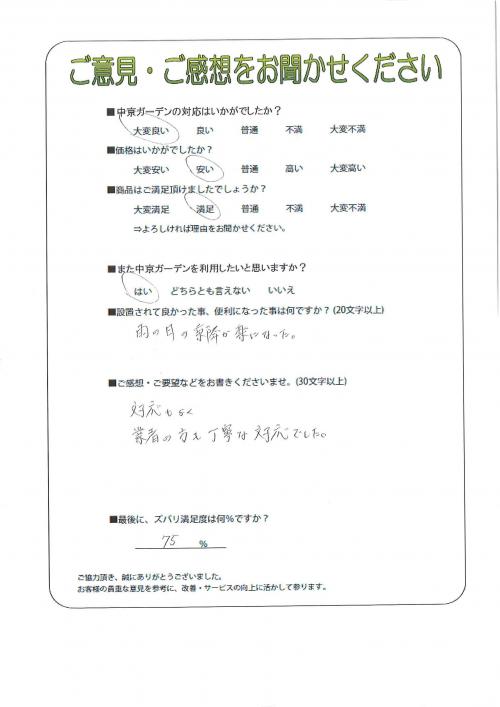 ご意見・ご感想をお聞かせください
■中京ガーデンの対応はいかがでしたか？
大変良い 良い 普通 不満 大変不満
■価格はいかがでしたか？
大変安い 安い 普通 高い 大変高い
■商品はご満足頂けましたでしょうか？
大変満足 満足 普通 不満 大変不満
⇒よろしければ理由をお聞かせください。
■また中京ガーデンを利用したいと思いますか？
はい どちらとも言えない いいえ
■設置されて良かった事、便利になった事は何ですか？(20文字以上)
雨の日の乗降が楽になった。
■ご感想・ご要望などをお書きくださいませ。(30文字以上)
対応もよく
業者の方も丁寧な対応でした。
■最後に、ズバリ満足度は何％ですか？
75 ％
ご協力頂き、誠にありがとうございました。
お客様の貴重な意見を参考に、改善・サービスの向上に活かして参ります。